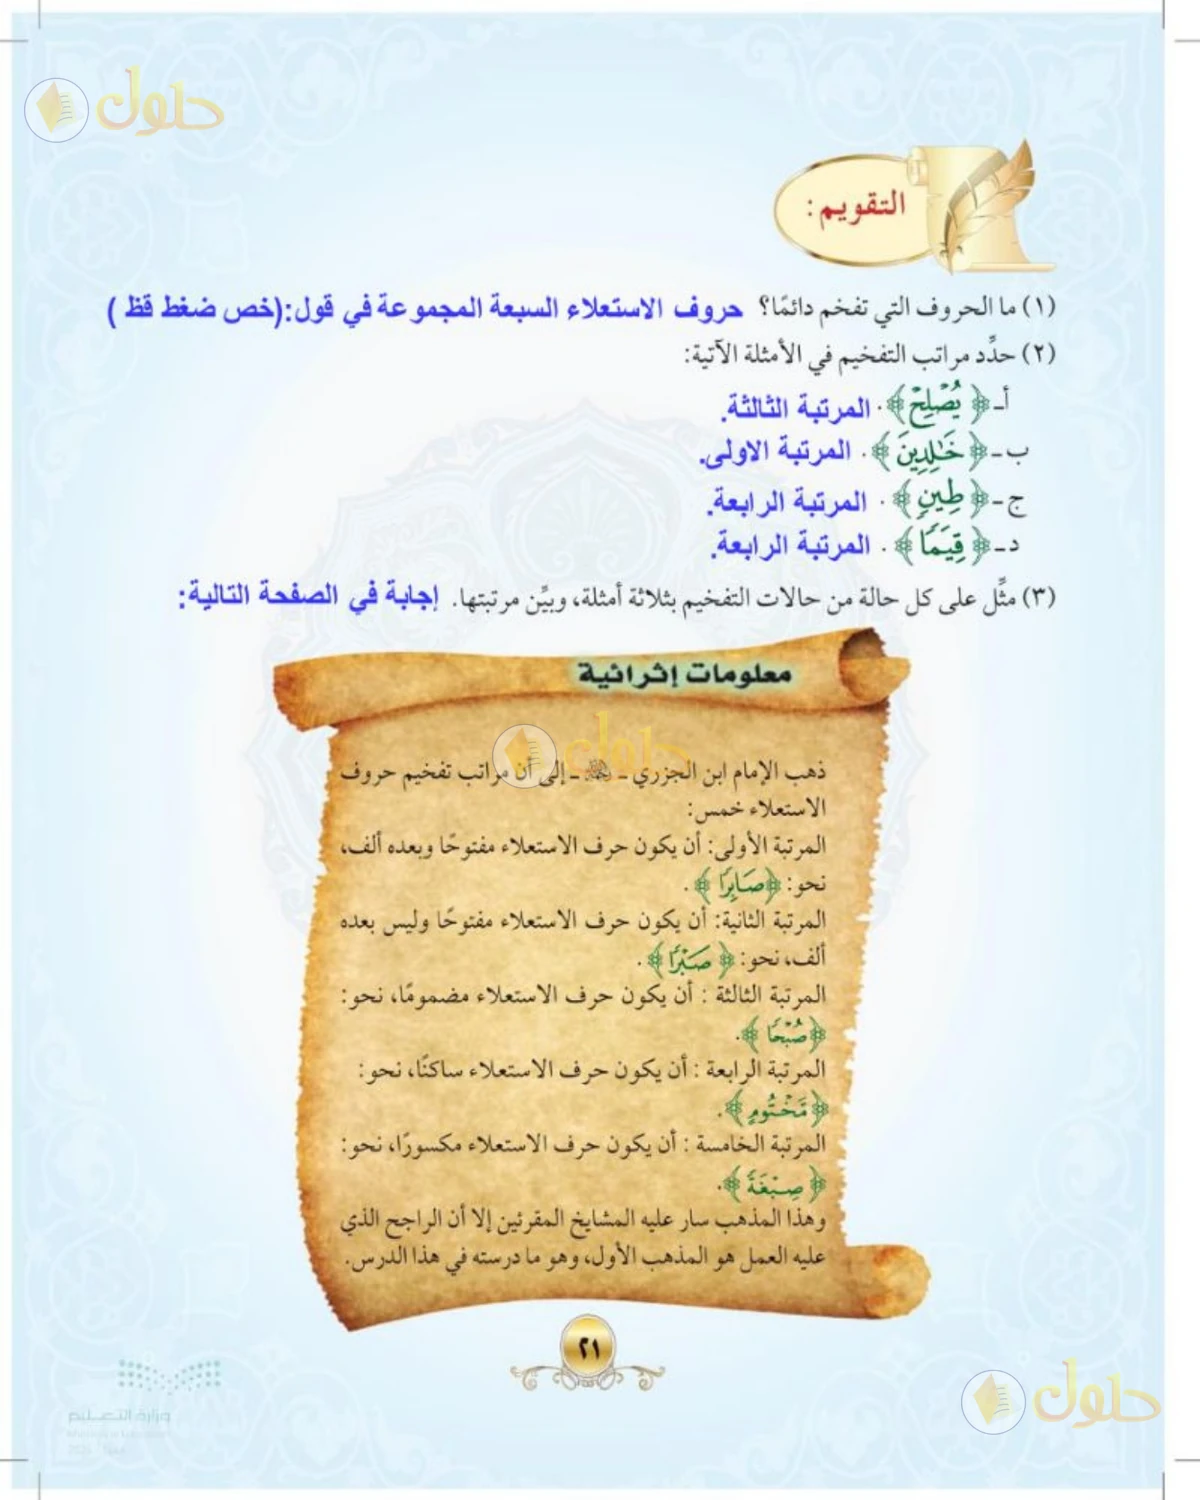 حلول
التقويم:
(١) ما الحروف التي تفخم دائمًا؟ حروف الاستعلاء السبعة المجموعة في قول:(خص ضغط قظ )
(٢) حدِّد مراتب التفخيم في الأمثلة الآتية:
أ-﴿ يُصْلِحْ ﴾. المرتبة الثالثة.
ب-﴿ خَٰلِدِينَ ﴾. المرتبة الاولى.
ج-﴿ طِينٖ ﴾. المرتبة الرابعة.
د-﴿ قِيَمٗا ﴾. المرتبة الرابعة.
(٣) مثِّل على كل حالة من حالات التفخيم بثلاثة أمثلة، وبيِّن مرتبتها. إجابة في الصفحة التالية:
معلومات إثرائية
حلول
ذهب الإمام ابن الجزري ـ ـ إلى أن مراتب تفخيم حروف
الاستعلاء خمس:
المرتبة الأولى: أن يكون حرف الاستعلاء مفتوحًا وبعده ألف،
نحو: ﴿صَابِرٗا ﴾.
المرتبة الثانية: أن يكون حرف الاستعلاء مفتوحًا وليس بعده
ألف، نحو: ﴿ صَبْرًا ﴾.
المرتبة الثالثة : أن يكون حرف الاستعلاء مضمومًا، نحو:
﴿صُبْحٗا ﴾.
المرتبة الرابعة : أن يكون حرف الاستعلاء ساكنًا، نحو:
﴿مَّخْتُومٍ ﴾.
المرتبة الخامسة : أن يكون حرف الاستعلاء مكسورًا، نحو:
﴿ صِبْغَةٗ ﴾.
وهذا المذهب سار عليه المشايخ المقرئين إلا أن الراجح الذي
عليه العمل هو المذهب الأول، وهو ما درسته في هذا الدرس.
٢١
وزارة التعليم
حلول